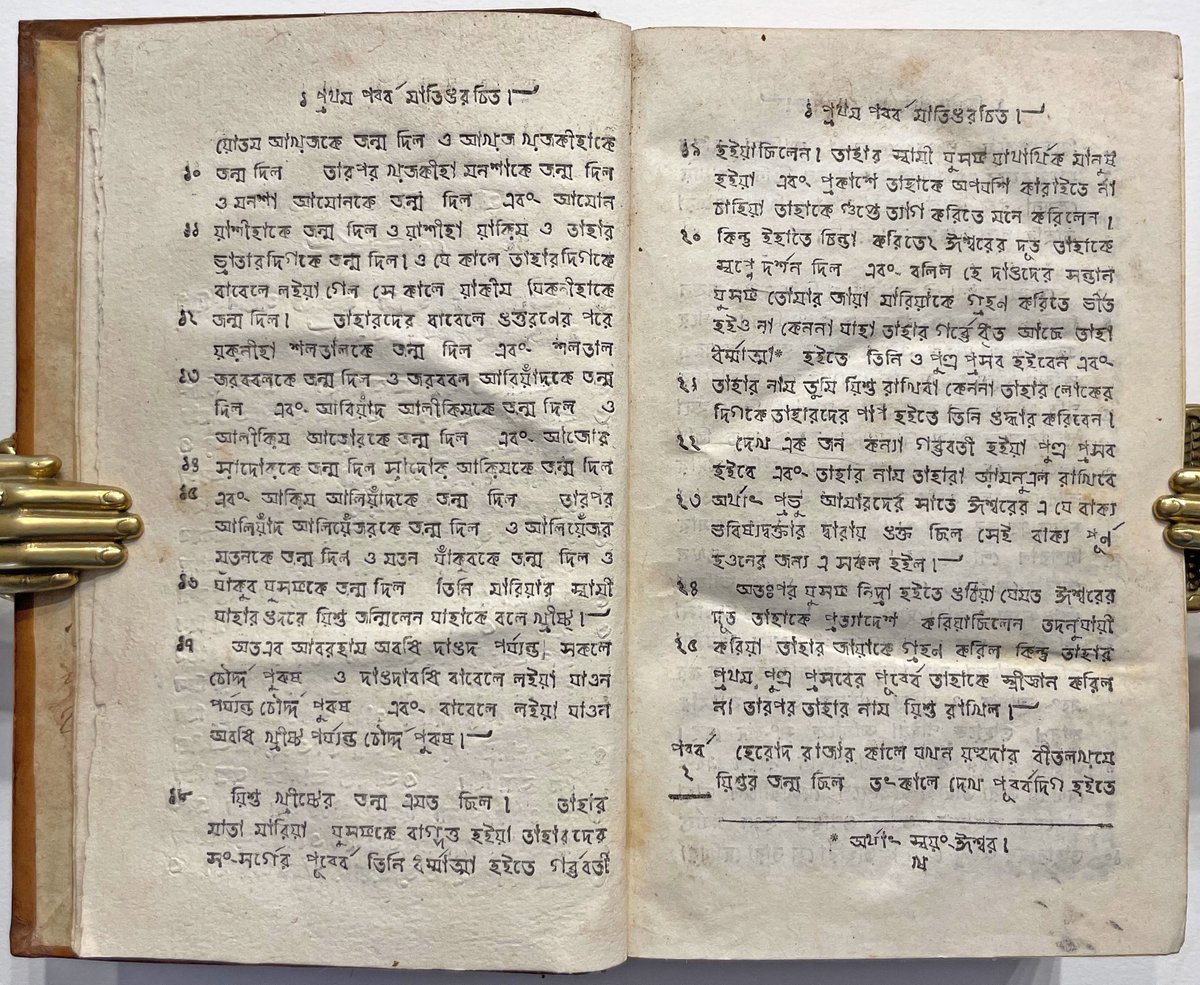 ১ প্রথম পর্ব্ব মাতিওর চিত।
য়োতম আখ়জকে জন্ম দিল ও আখ়জ খ়জকীহাকে
১০ জন্ম দিল তারপর খ়জকীহা মনশাকে জন্ম দিল
ও মনশা আমোনকে জন্ম দিল এবং আমোন
১১ য়াশীহাকে জন্ম দিল ও য়াশীহা য়াকিম ও তাহার
ভ্রাতারদিগকে জন্ম দিল। ও যে কালে তাহারদিগকে
বাবেলে লইয়া গেল সে কালে য়াকীম য়িকনীহাকে
১২ জন্ম দিল। তাহারদের বাবেলে ওত্তরণের পরে
য়কনীহা শলতালকে জন্ম দিল এবং শলতাল
১৩ জরববলকে জন্ম দিল ও জরববল আবিয়ঁদকে জন্ম
দিল এবং আবিয়ঁদ আলীকিমকে জন্ম দিল ও
আলীকিম আজোরকে জন্ম দিল এবং আজোর
১৪ সাদোরকে জন্ম দিল সাদোক আকিমকে জন্ম দিল
১৫ এবং আকিম আলিয়ঁদকে জন্ম দিল তারপর
আলিয়ঁদ আলিয়েঁজরকে জন্ম দিল ও আলিয়েঁজর
মতনকে জন্ম দিল ও মতন য়াঁকুবকে জন্ম দিল ও
১৬ য়াকুব য়ুসফকে জন্ম দিল তিনি মারিয়ার স্বামী
যাহার ওদরে য়িশু জন্মিলেন যাহাকে বলে খ্রীষ্ট।
১৭ অতএব আবরহাম অবধি দাওদ পর্য্যন্ত সকলে
চৌর্দ্দ পুরুষ ও দাওদাবধি বাবেলে লইয়া যাওন
পর্য্যন্ত চৌর্দ্দ পুরুষ এবং বাবেলে লইয়া যাওন
অবধি খ্রীষ্ট পর্য্যন্ত চৌর্দ্দ পুরুষ।
১৮ য়িশু খ্রীষ্টের জন্ম এমত ছিল। তাহার
মাতা মারিয়া য়ুসফকে বাগ্দত্ত হইয়া তাহারদের
সংসর্গের পূর্ব্বে তিনি ধর্ম্মাত্মা হইতে গর্ব্ভবতী
১ প্রথম পর্ব্ব মাতিওর চিত।
১৯ হইয়াছিলেন। তাহার স্বামী য়ুসফ যাথার্থিক মানুষ
হইয়া এবং প্রকাশে তাহাকে অপযশি কারাইতে না
চাহিয়া তাহাকে গুপ্তে ত্যাগ করিতে মনে করিলেন।
২০ কিন্তু ইহাতে চিন্তা করিতে২ ঈশ্বরের দূত তাহাকে
স্বপ্নে দর্শন দিল এবং বলিল হে দাওদের সন্তান
য়ুসফ তোমার জায়া মারিয়াকে গ্রহণ করিতে ভীত
হইও না কেননা যাহা তাহার গর্ব্ভে ধৃত আছে তাহা
ধর্ম্মাত্মা* হইতে তিনি ও পুত্র প্রসব হইবেন এবং
২১ তাহার নাম তুমি য়িশু রাখিবা কেননা তাহার লোকের
দিগকে তাহারদের পাপ হইতে তিনি ওদ্ধার করিবেন।
২২ দেখ এক জন কন্যা গর্ব্ভবতী হইয়া পুত্র প্রসব
হইবে এবং তাহার নাম তাহারা আমনুএল রাখিবে
২৩ অর্থাৎ প্রভু আমারদের সাতে ঈশ্বরের এ যে বাক্য
ভবিষ্যদ্বক্তার দ্বারায় ওক্ত ছিল সেই বাক্য পূর্ণ
হওনের জন্য এ সকল হইল।
২৪ অতঃপর য়ুসফ নিদ্রা হইতে ওঠিয়া যেমত ঈশ্বরের
দূত তাহাকে প্রত্যাদেশ করিয়াছিলেন তদনুযায়ী
২৫ করিয়া তাহার জায়াকে গ্রহণ করিল কিন্তু তাহার
প্রথম পুত্র প্রসবের পূর্ব্বে তাহাকে স্ত্রীজ্ঞান করিল
না তারপর তাহার নাম য়িশু রাখিল।
পর্ব্ব হেরোদ রাজার কালে যখন য়হুদার বীতলখমে
২ য়িশুর জন্ম ছিল তৎকালে দেখ পূর্ব্বদিগ হইতে
* অর্থাৎ স্বয়ং ঈশ্বর।
খ